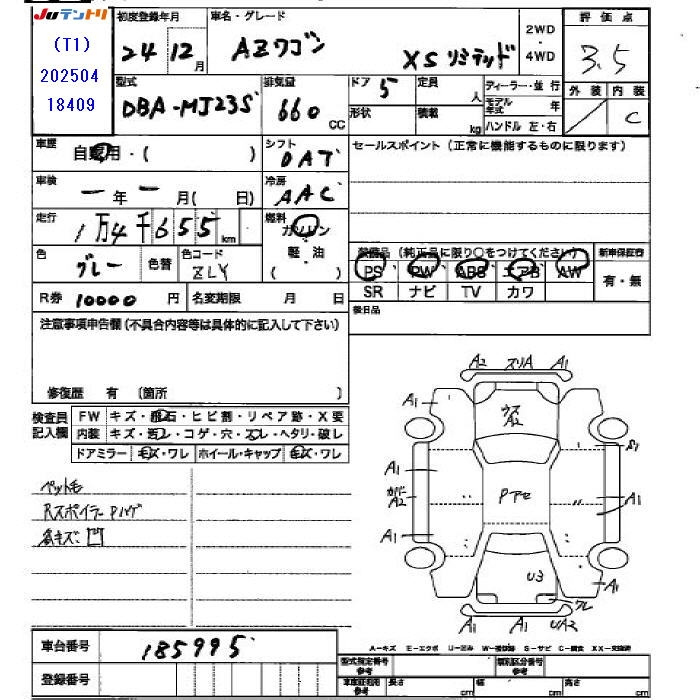 JUテントリ
(T1)
202504
18409
初度登録年月
24年12月
車名・グレード
AZワゴン XSリミテッド
2WD
・
4WD
評価点
3.5
外装 内装
C
型式
DBA-MJ23S
排気量
660
CC
ドア 5
定員
人
形状
積載
kg
ディーラー・並行
モデル年式 年
ハンドル 左・右
車歴
自家用・( )
シフト
DAT
セールスポイント(正常に機能するものに限ります)
車検
ー年ー月( 日)
冷房
AAC
走行
1万4千655km
燃料
ガソリン
軽・油
( )
色
グレー
色替
色コード
ZLY
装備品(純正品に限り○をつけてください) 新車保証書
PS PW ABS エアB AW
SR ナビ TV カワ
有・無
R券 10000 円
名変期限 月 日
後日品
注意事項申告欄(不具合内容等は具体的に記入して下さい)
修復歴 有 〔箇所 〕
検査員記入欄
FW キズ・飛石・ヒビ割・リペア跡・X要
内装 キズ・汚レ・コゲ・穴・スレ・ヘタリ・破レ
ドアミラー キズ・ワレ ホイール・キャップ キズ・ワレ
ペット毛
Rスポイラー Pハゲ
各キズ凹
A2 スリA A1
A1
ウスA2
S1
A1
カバーA2
Pアセ
A1
A1
A1
U3
A1
ワレ
A1 A1 UA2
車台番号 185995
登録番号
A-キズ E-エクボ U-凹み W-補修跡 S-サビ C-腐食 XX-交換済
型式指定番号 参考
類別区分番号 参考
車庫証明用 参考
長さ cm
幅 cm
高さ cm